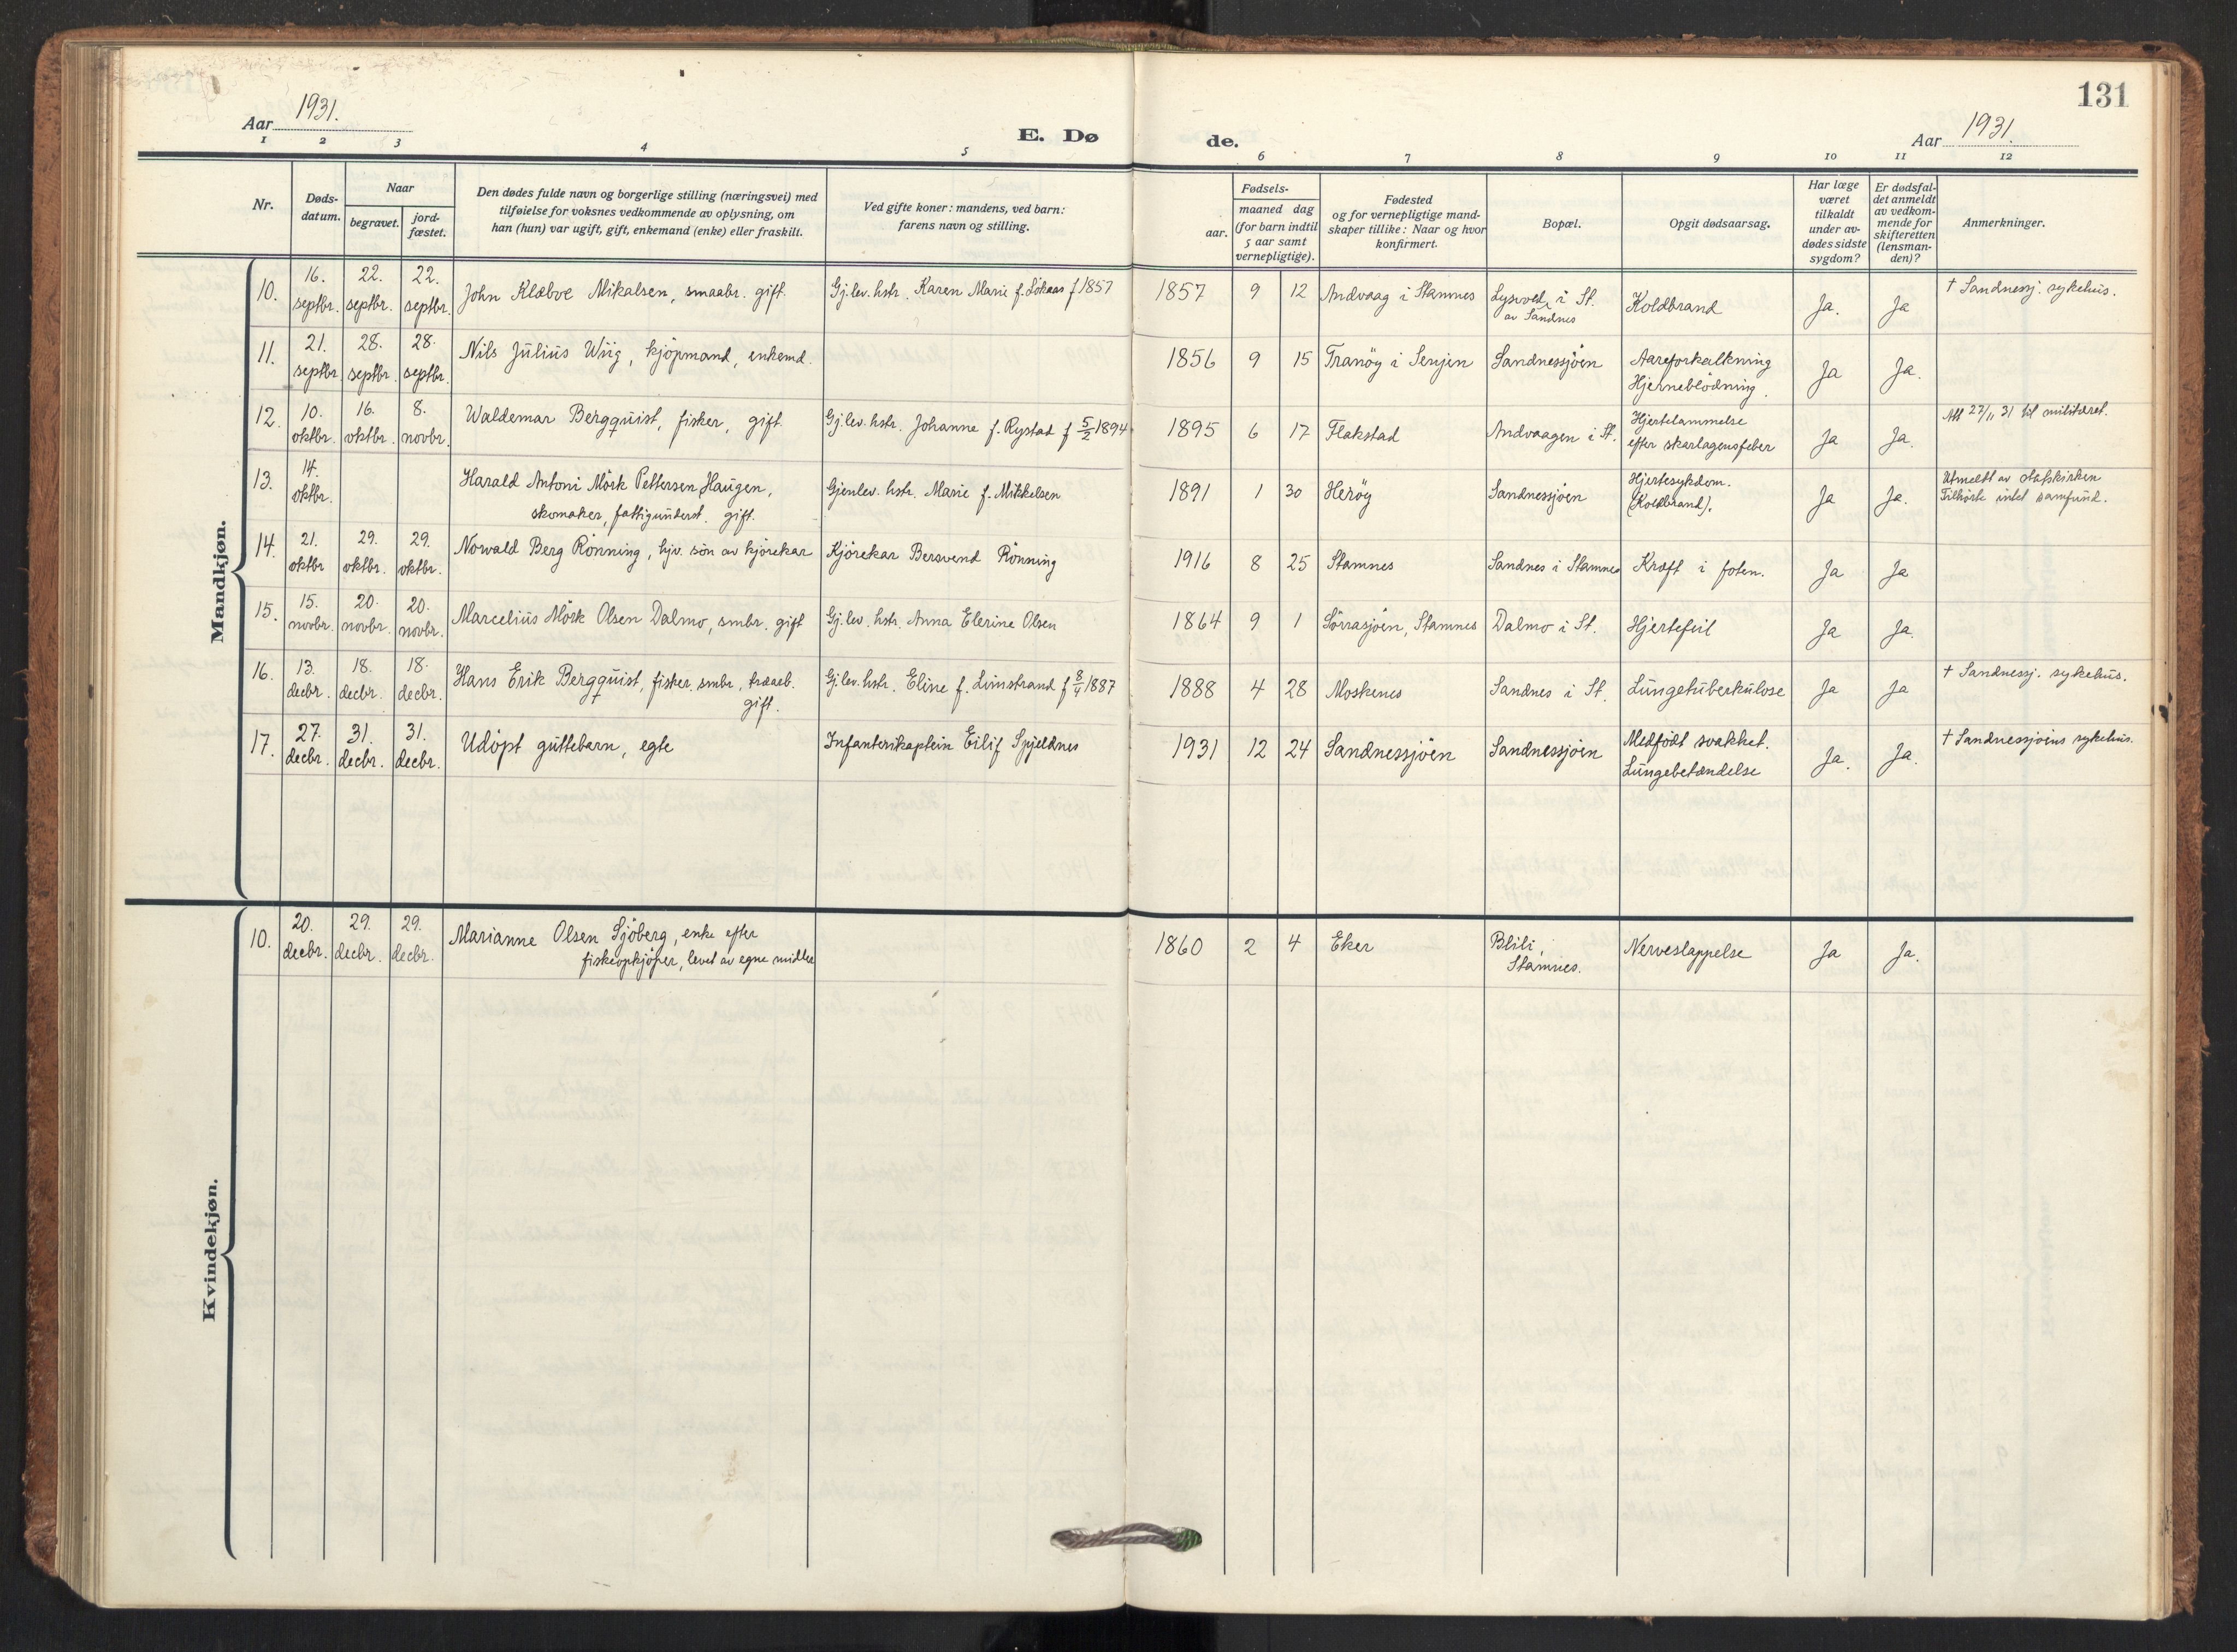 131
Aar 1931.
E. Døde.
Aar 1931.
1 2 3 4 5 6 7 8 9 10 11 12
Nr.
Døds-datum.
Naar
begravet.
jord-fæstet.
Den dødes fulde navn og borgerlige stilling (næringsvei) med
tilføielse for voksnes vedkommende av oplysning, om
han (hun) var ugift, gift, enkemand (enke) eller fraskilt.
Ved gifte koner: mandens, ved barn:
farens navn og stilling.
Fødsels-
aar.
maaned dag
(for barn indtil
5 aar samt
vernepligtige).
Fødested
og for vernepligtige mand-
skaper tillike: Naar og hvor
konfirmert.
Bopæl.
Opgit dødsaarsag.
Har læge
været
tilkaldt
under av-
dødes sidste
sygdom?
Er dødsfal-
det anmeldt
av vedkom-
mende for
skifteretten
(lensman-
den)?
Anmerkninger.
Mandkjøn.
10. 16. septbr. 22. septbr. 22. septbr. John Klæboe Mikalsen, smaabr. gift. Gj.lev. hstr. Karen Marie f. Lökaas f 1857 1857 9 12 Andvaag i Stamnes Lysvold, i St. av Sandnes Koldbrand Ja. Ja † Sandnessj. sykehus.
11. 21. septbr. 28. septbr. 28. septbr. Nils Julius Wiig, kjöpmand, enkemd. 1856 9 15 Tranöy i Senjen Sandnessjöen Aareforkalkning Hjerneblödning. Ja Ja.
12. 10. oktbr. 16. oktbr. 8. novbr. Waldemar Bergquist, fisker, gift. Gj.lev. hstr. Johanne f. Rystad f 5/2 1894 1895 6 17 Flakstad Andvaagen i St. Hjertelammelse efter skarlagensfeber Ja Ja. Att 27/11 31 til militæret.
13. 14. oktbr. Harald Antoni Mörk Pettersen Haugen, skomaker, fattigunderst. gift. Gjenlev. hstr. Marie f. Mikkelsen 1891 1 30 Heröy Sandnessjöen Hjertesykdom. (Koldbrand). Ja Ja. Utmeldt av statskirken Tilhörte intet samfund.
14. 21. oktbr 29. oktbr. 29. oktbr. Norvald Berg Rönning, hjv. sön av kjörekar Kjörekar Bersvend Rönning 1916 8 25 Stamnes Sandnes i Stamnes Kræft i foten. Ja Ja
15. 15. novbr. 20. novbr. 20. novbr. Marcelius Mörk Olsen Dalmo, smbr. gift Gj.lev. hstr. Anna Elerine Olsen 1864 9 1 Sörrasjöen, Stamnes Dalmo i St. Hjertefeil Ja Ja.
16. 13. decbr. 18. decbr. 18. decbr. Hans Erik Bergquist, fisker, smbr, træarb. gift. Gj.lev. hstr. Eline f. Limstrand f 8/4 1887 1888 4 28 Moskenes Sandnes i St. Lungetuberkulose Ja Ja † Sandnessj. sykehus.
17. 27. decbr. 31. decbr. 31. decbr. Udöpt guttebarn, egte Infanterikaptein Eilif Spjeldnes 1931 12 24 Sandnessjöen Sandnessjöen Medfödt svakhet. Lungebetændelse Ja. Ja. † Sandnessjöens sykehus.
Kvindekjøn.
10. 20. decbr. 29. decbr. 29. decbr. Marianne Olsen Sjöberg, enke efter fiskeopkjöper, levet av egne midler 1860 2 4 Eker Blili, Stamnes. Nerveslappelse Ja Ja.